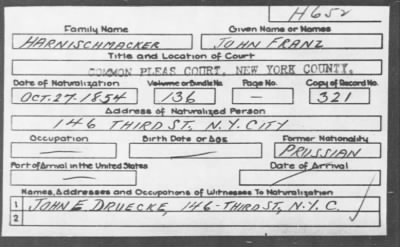 H652
Family Name Given Name or Names
HARNISCHMACKER JOHN FRANZ
Title and Location of Court
COMMON PLEAS COURT, NEW YORK COUNTY.
Date of Naturalization Volume or Bundle No. Page No. Copy of Record No.
OCT. 27. 1854 136 — 321
Address of Naturalized Person
146 THIRD ST, N.Y. CITY
Occupation Birth Date or Age Former Nationality
— — PRUSSIAN
Port of Arrival in the United States Date of Arrival
— —
Names, Addresses and Occupations of Witnesses To Naturalization
1 JOHN E DRUECKE, 146-THIRD ST, N.Y.C.
2